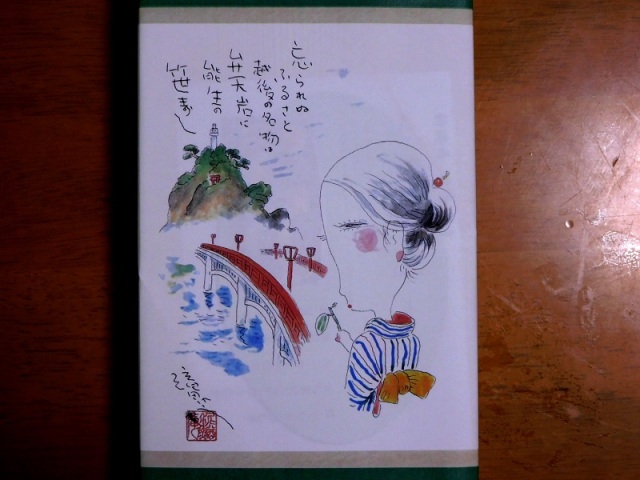 忘られぬ
ふるさと
越後の名物は
弁天岩に
能生の
笹ずし